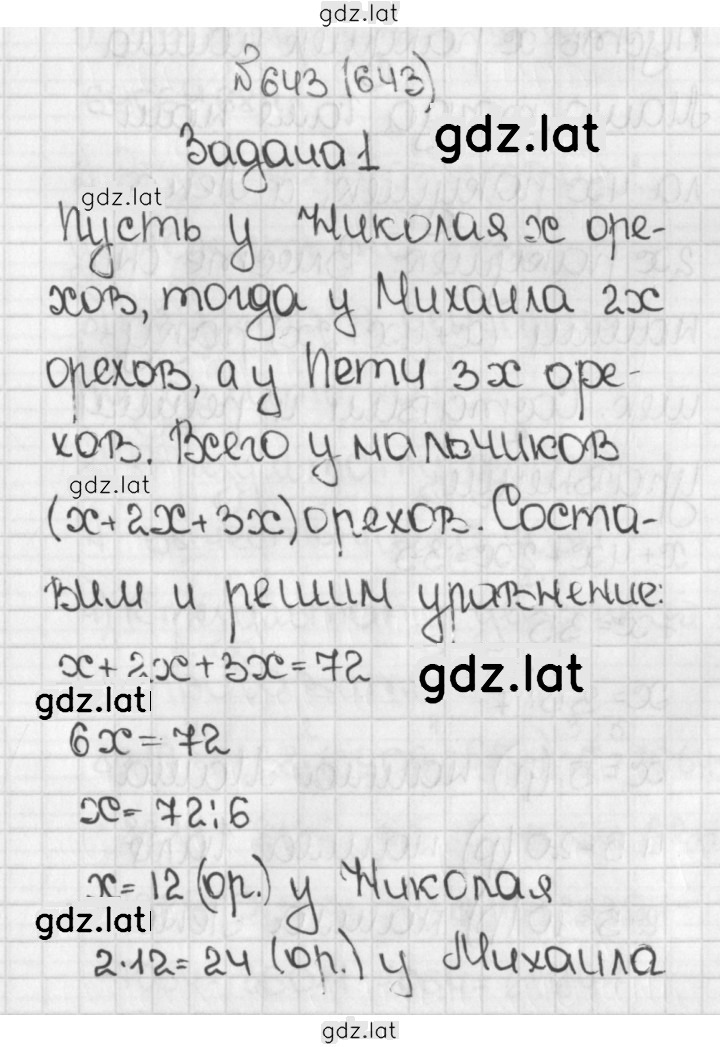 gdz.lat
№643 (643)
gdz.lat
Задача 1
gdz.lat
Пусть у Николая х оре-
хов, тогда у Михаила 2х
орехов, а у Пети 3х оре-
хов. Всего у мальчиков
gdz.lat
(х+2х+3х) орехов. Соста-
вим и решим уравнение:
х+2х+3х=72
gdz.lat
gdz.lat
6х=72
х=72:6
х=12 (ор.) у Николая
gdz.lat
2·12=24 (ор.) у Михаила
gdz.lat